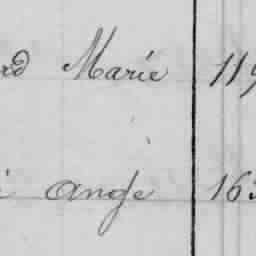 rd Marie 119
i Ange 163